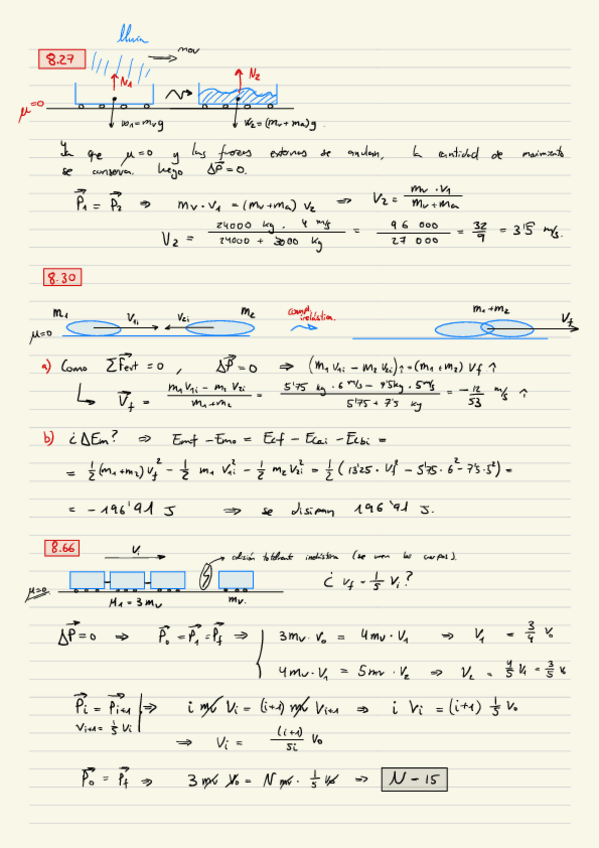 lluvia
8.27
mov
N1
N2
μ=0
w1=mvg
w2=(mv+ma)g
Ya que μ=0 y las fuerzas externas se anulan, la cantidad de movimiento
se conserva. Luego ΔP=0.
P1 = P2 ⇒ mv·v1 = (mv+ma) v2 ⇒ v2 = mv·v1 / mv+ma
V2 = 24000 kg · 4 m/s / 24000 + 3000 kg = 96 000 / 27 000 = 32/9 = 3'5 m/s.
8.30
m1 V1i V2i m2 m1+m2
μ=0 Vf
a) Como ΣFext = 0, ΔP=0 ⇒ (m1 V1i - m2 V2i)↑=(m1+m2) Vf ↑
Vf = m1 V1i - m2 V2i / m1+m2 = 5'75 kg · 6 m/s - 7'5kg · 5m/s / 5'75 + 7'5 kg = -12/53 m/s ↑
b) ¿ΔEm? ⇒ Emf - Emo = Ecf - Ecai - Ecbi =
= 1/2 (m1+m2) Vf² - 1/2 m1 V1i² - 1/2 m2 V2i² = 1/2 (13'25 · Vf² - 5'75·6² - 7'5·5²) =
= -196'91 J ⇒ se disipan 196'91 J.
8.66
Vi
μ=0
M1 = 3mv
mv.
¿ vf = 1/5 Vi?
ΔP=0 ⇒ P0 = P1 = Pf ⇒ 3mv·V0 = 4mv·V1 ⇒ V1 = 3/4 V0
4mv·V1 = 5mv·V2 ⇒ V2 = 4/5 V1 = 3/5 V0
Pi = Pi+1 ⇒ i mv Vi = (i+1) mv Vi+1 ⇒ i Vi = (i+1) 1/5 V0
Vi+1 = 1/5 Vi
⇒ Vi = (i+1)/5i V0
P0 = Pf ⇒ 3 mv V0 = N mv · 1/5 V0 ⇒ N - 15